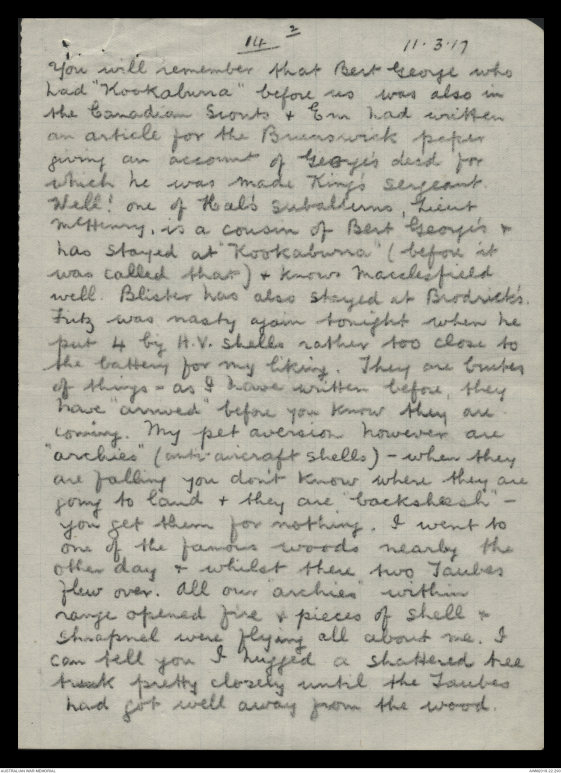 14 2 11.3.17
You will remember that Bert George who
had "Kookaburra" before us was also in
the Canadian Scouts & Em had written
an article for the Brunswick paper
giving an account of George's deed for
which he was made King's sergeant.
Well! one of Hal's subalterns, Lieut
McHenry, is a cousin of Bert George's &
has stayed at "Kookaburra" (before it
was called that) & knows Macclesfield
well. Blister has also stayed at Brodrick's.
Fritz was nasty again tonight when he
put 4 by H.V. shells rather too close to
the battery for my liking. They are brutes
of things - as I have written before, they
have "arrived" before you know they are
coming. My pet aversion however are
"archies" (anti-aircraft shells) - when they
are falling you don't know where they are
going to land & they are "backsheesh" -
you get them for nothing. I went to
one of the famous woods nearby the
other day & whilst there two Taubes
flew over. All our "archies" within
range opened fire & pieces of shell &
shrapnel were flying all about me. I
can tell you I hugged a shattered tree
trunk pretty closely until the Taubes
had got well away from the wood.
AUSTRALIAN WAR MEMORIAL